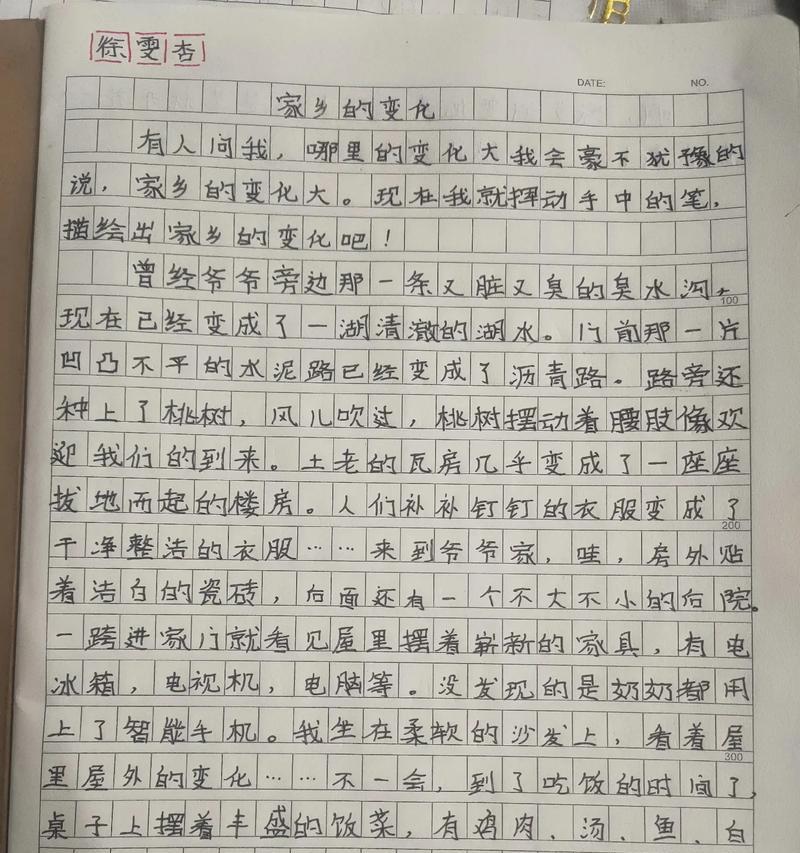 徐雯杏
DATE: NO.
家乡的变化
有人问我，哪里的变化大我会豪不犹豫的
说，家乡的变化大。现在我就挥动手中的笔，
描绘出家乡的变化吧！
曾经爷爷旁边那一条又脏又臭的臭水沟，
100
现在已经变成了一湖清澈的湖水。门前那一片
凹凸不平的水泥路已经变成了沥青路。路旁还
种上了桃树，风儿吹过，桃树摆动着腰肢像欢
迎我们的到来。土老的瓦房几乎变成了一座座
拔地而起的楼房。人们补补钉钉的衣服变成了
200
干净整洁的衣服……来到爷爷家，哇，房外贴
着洁白的瓷砖，后面还有一个不大不小的后院。
一跨进家门就看见屋里摆着崭新的家具，有电
冰箱，电视机，电脑等。没发现的是奶奶都用
上了智能手机。我坐在柔软的沙发上，看着屋
300
里屋外的变化……不一会，到了吃饭的时间了，
桌子上摆着丰盛的饭菜，有鸡肉、汤、鱼、白